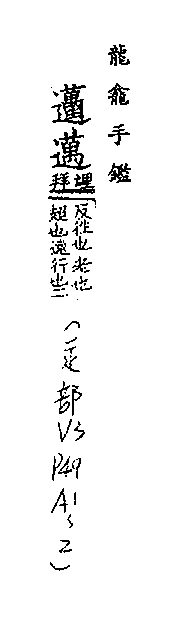 龍龕手鑑
邁邁埋拜反往也老也
超也遠行也二
(辵部V3P49A1、2)